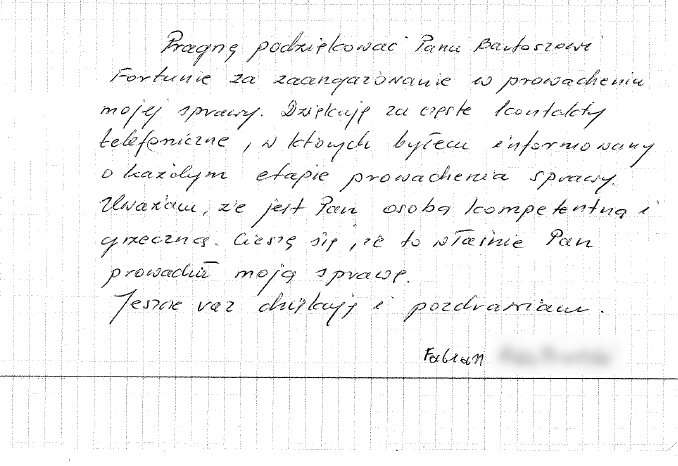 Pragnę podziękować Panu Bartoszowi
Fortunie za zaangażowanie w prowadzeniu
mojej sprawy. Dziękuję za częste kontakty
telefoniczne, w których byłem informowany
o każdym etapie prowadzenia sprawy.
Uważam, że jest Pan osobą kompetentną i
grzeczną. Cieszę się, że to właśnie Pan
prowadził moją sprawę.
Jeszcze raz dziękuję i pozdrawiam.
Fabian